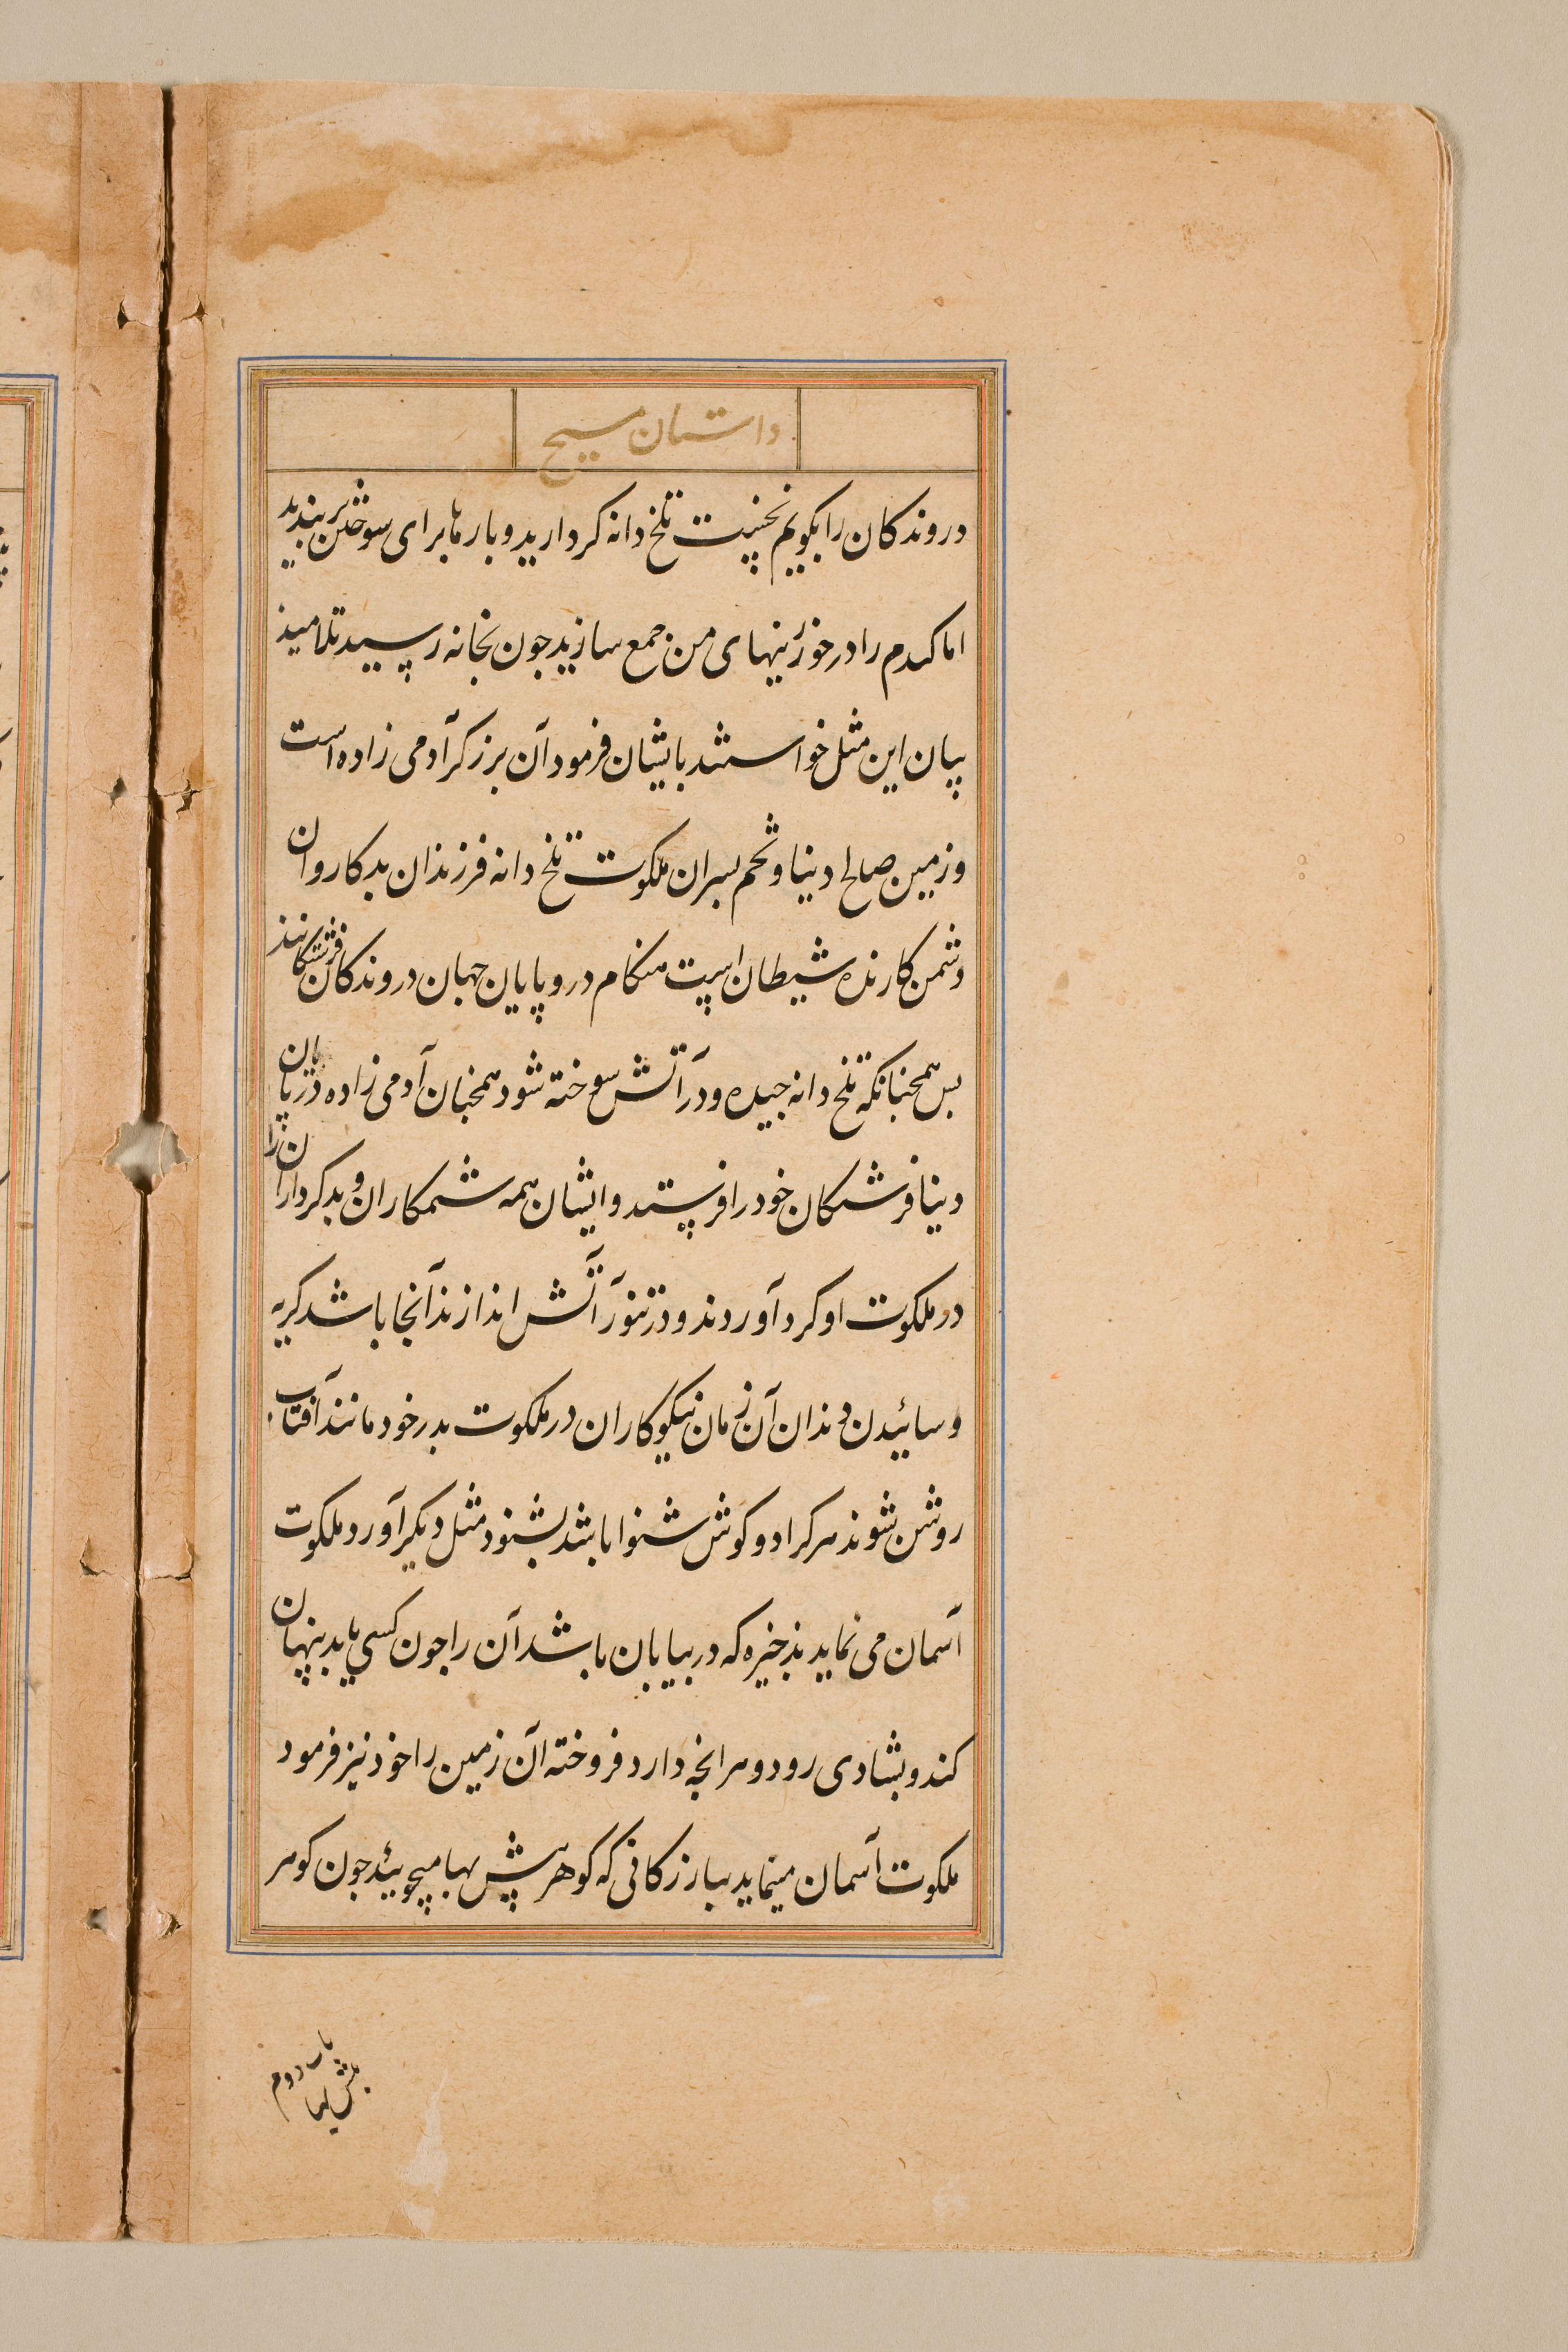 داستان مسیح
دروندکان را بکویم نخست تلخ دانه کرد ارید و بارها برای سوختن بربندید
اما کندم را در خوزینهای من جمع سازید جون بخانه رسید تلامیذ
بیان این مثل خواستند بایشان فرمود آن برزکر آدمی زاده است
وزمین صالح دنیا و تخم بسران ملکوت تلخ دانه فرزندان بدکار وان
دشمن کارنده شیطان است هنکام درو پایان جهان دروندکان فرشتکانند
بس همجنانکه تلخ دانه جیده و در آتش سوخته شود همجنان آدمی زاده در پایان
دنیا فرشتکان خود را فرستد و ایشان همه ستمکاران و بدکرداران را
در ملکوت او کرد آوردند و در تنور آتش اندازند آنجا باشد کریه
و سائیدن دندان آن زمان نیکوکاران در ملکوت بدر خود مانند آفتاب
روشن شوند هرکرا دو کوش شنوا باشد بشنود مثل دیکر آورد ملکوت
آسمان می نماید بذخیره که در بیابان باشد آن را جون کسی یابد پنهان
کند و بشادی رود و هر آنجه دارد فروخته آن زمین را خرد نیز فرمود
ملکوت آسمان مینماید ببازرکانی که کوهر بیش بها میجوید جون کوهر
باب دوم